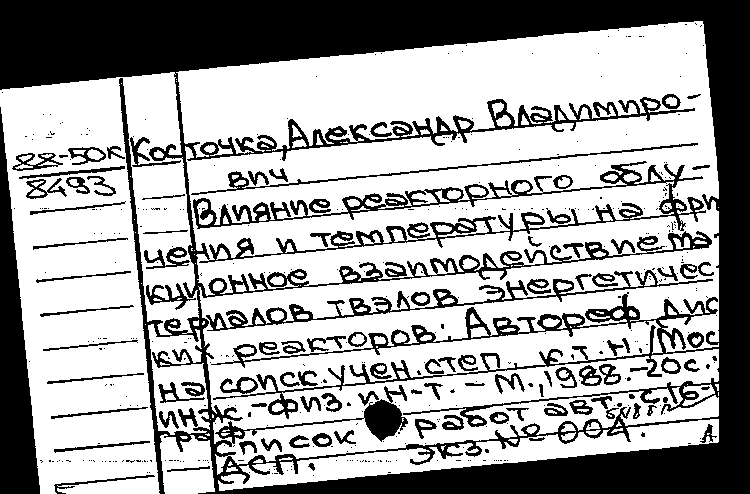 88-50К Косточка, Александр Владимиро-
8493 вич.
Влияние реакторного облу-
чения и температуры на фри
кционное взаимодействие ма-
териалов твэлов энергетичес-
ких реакторов: Автореф. дис
на соиск. учен. степ. к.т.н. /Мос
инж.-физ. ин-т. - М., 1988.-20с.:
граф.
Список работ авт.: с.16-1
ДСП. Экз. № 004.